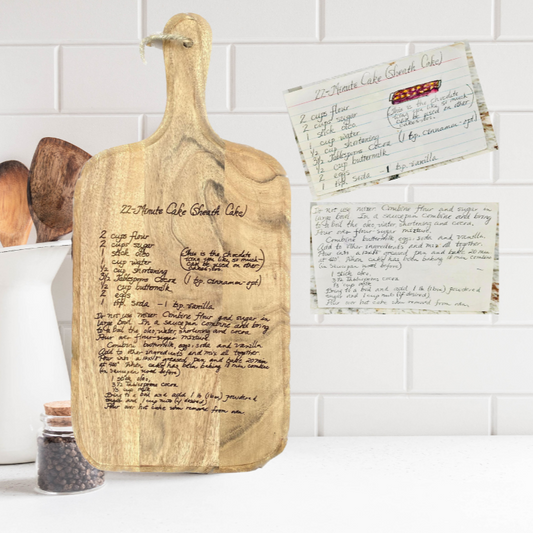 22-Minute Cake (Sheath Cake)
2 cups flour
2 cups sugar
1 stick oleo
1 cup water
½ cup shortening
3½ Tablespoons Cocoa
½ cup buttermilk
2 eggs
1 tsp. soda - 1 tsp. vanilla
(This is the chocolate
can be used on other
cakes, too.)
(1 tsp. cinnamon-opt)
Do not use mixer. Combine flour and sugar in
large bowl. In a saucepan combine and bring
to a boil the oleo, water, shortening and cocoa.
Pour over flour-sugar mixture.
Combine buttermilk, eggs, soda and vanilla.
Add to other ingredients and mix all together.
Pour into a greased pan, and bake 20 min
at 400°. When cake has been baking 15 min, combine
(in saucepan used before)
1 stick oleo,
3½ Tablespoons cocoa
⅓ cup milk
Bring to a boil and add 1 lb (1 box) powdered
sugar and 1 cup nuts (if desired)
Pour over hot cake when removed from oven.
22-Minute Cake (Sheath Cake)
2 cups flour
2 cups sugar
1 stick oleo
1 cup water
½ cup shortening
3½ Tablespoons Cocoa
½ cup buttermilk
2 eggs
1 tsp. soda - 1 tsp. vanilla
(This is the chocolate
can be used on other
cakes, too.)
(1 tsp. cinnamon-opt)
Do not use mixer. Combine flour and sugar in
large bowl. In a saucepan combine and bring
to a boil the oleo, water, shortening and cocoa.
Pour over flour-sugar mixture.
Combine buttermilk, eggs, soda and vanilla.
Add to other ingredients and mix all together.
Pour into a greased pan, and bake 20 min
at 400°. When cake has been baking 15 min, combine
(in saucepan used before)
1 stick oleo,
3½ Tablespoons cocoa
⅓ cup milk
Bring to a boil and add 1 lb (1 box) powdered
sugar and 1 cup nuts (if desired)
Pour over hot cake when removed from oven.